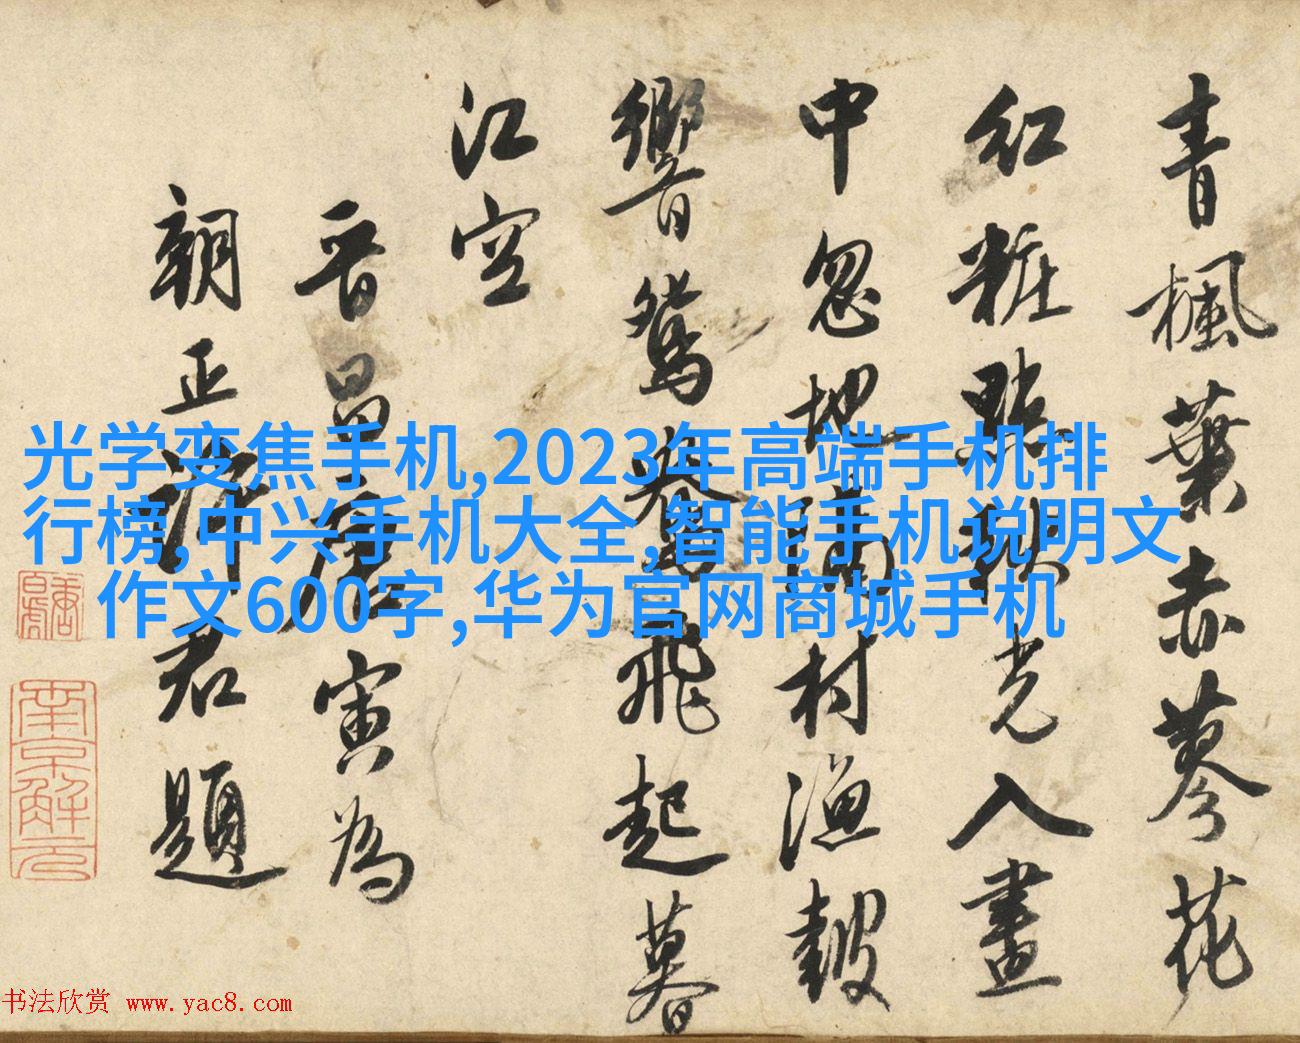 青楓葉赤蓼花
紅粧點秋光入畫
中忽地滿村漁鼓
響鴛鴦飛起暮
江空
晉昌唐寅為
朝正君題
南京解元
光学变焦手机,2023年高端手机排
行榜,中兴手机大全,智能手机说明文
作文600字,华为官网商城手机
书法欣赏 www.yac8.com